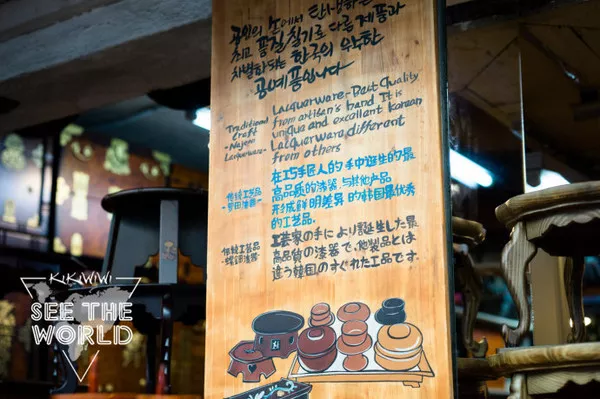 공인의 손에서 탄생하는
최고 품질, 칠기로 다른 제품과
차별화되는 한국의 우수한
공예품입니다
Traditional
Craft
-Najeon
Lacquerware-
Lacquerware-Best Quality
from artisan's hand It is
unique and excellent Korean
Lacquerware, different
from others
传统工艺品
在巧手匠人的手中诞生的最
高品质的漆器,与其他产品
形成鲜明差异的韩国最优秀
的工艺品.
伝統工芸品
-螺鈿漆器-
工芸家の手により誕生した最
高品質の漆器で、他製品とは
違う韓国のすぐれた工品です.
KiKiWiWi
SEE THE
WORLD